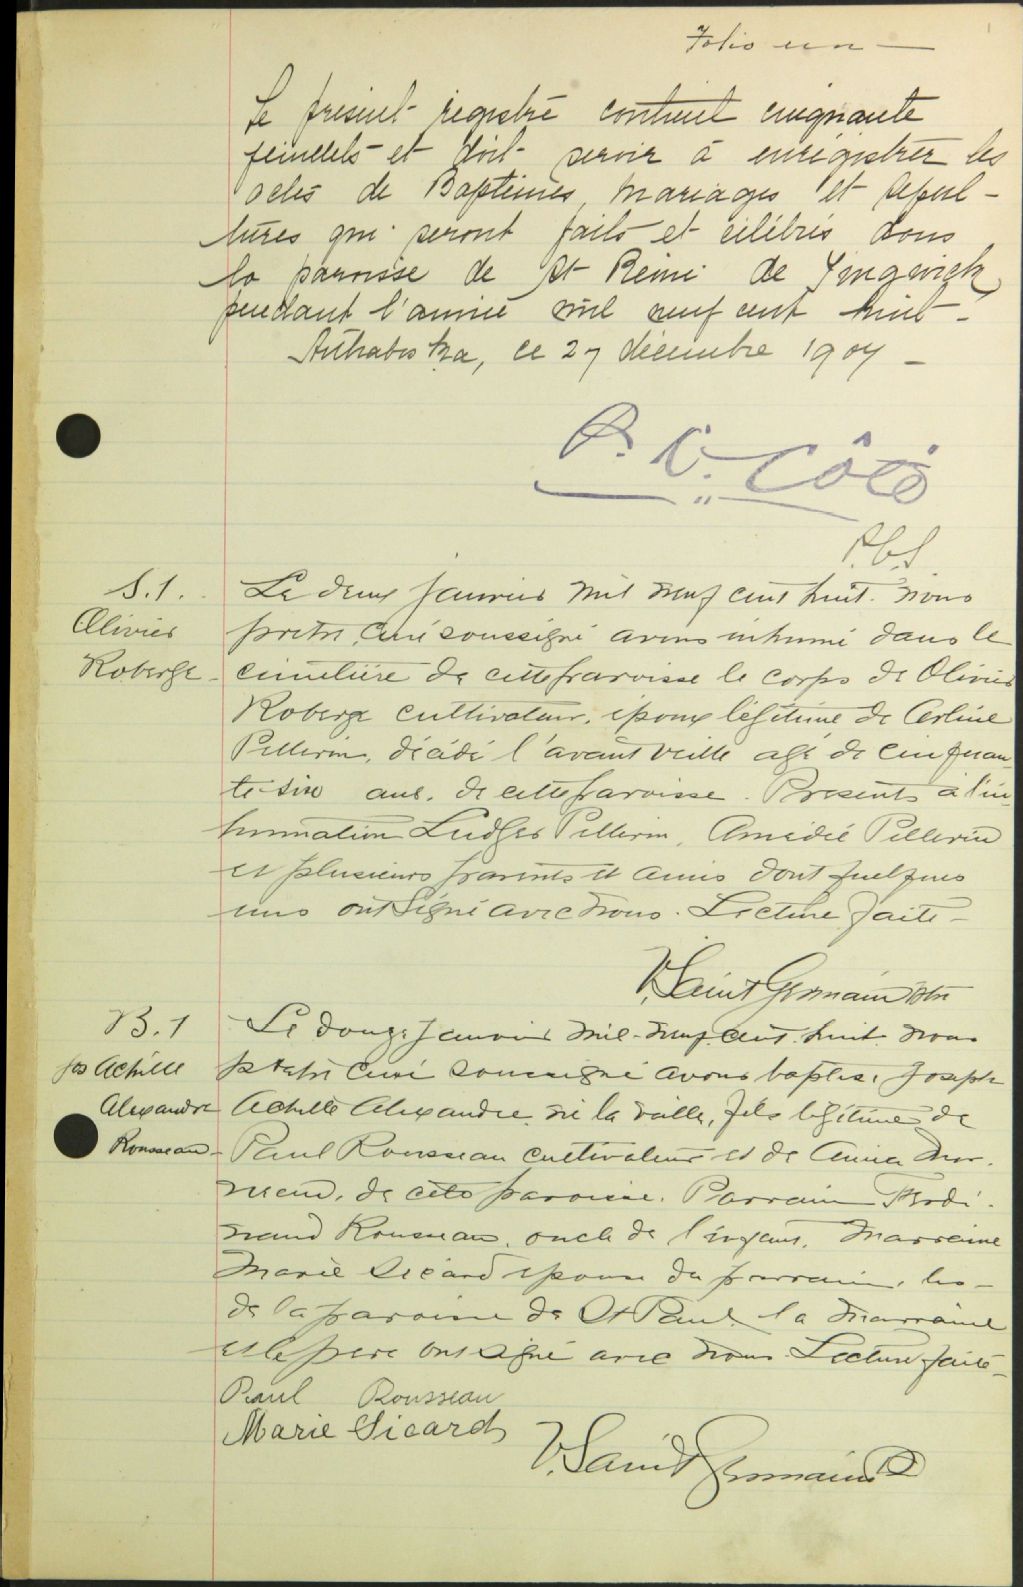 Folio un —
Le présent registre contient cinquante
feuillets et doit servir à enrégistrer les
actes de Baptêmes, Mariages et sépul-
tures qui seront faits et célébrés dans
la paroisse de St Rémi de Tingwick,
pendant l'année mil neuf cent huit -
Arthabaska, ce 27 décembre 1907 -
P. L. Côté
P.C.S
S.1.
Olivier
Roberge -
Le deux Janvier mil neuf cent huit. nous
prêtre curé soussigné avons inhumé dans le
cimetière de cette paroisse le corps de Olivier
Roberge cultivateur, époux légitime de Arline
Pellerin, décédé l'avant veille agé de cinquan-
te-six ans. de cette paroisse. Présents à l'in-
humation Ludger Pellerin, Amédée Pellerin
et plusieurs parents et amis dont quelques
uns ont signé avec nous. Lecture faite -
V. Saint Germain Ptre
B.1
Jos Achille
Alexandre
Rousseau -
Le douze Janvier mil-neuf cent huit nous
prêtre curé soussigné avons baptisé Joseph
Achille Alexandre né la veille, fils légitime de
Paul Rousseau cultivateur et de Anna Mor-
neau, de cette paroisse. Parrain Ferdi-
nand Rousseau, oncle de l'enfant, Marraine
Marie Sicard épouse du parrain, les
de la paroisse de St Paul. la Marraine
et le père ont signé avec nous. Lecture faite -
Paul Rousseau
Marie Sicard
V. Saint Germain P